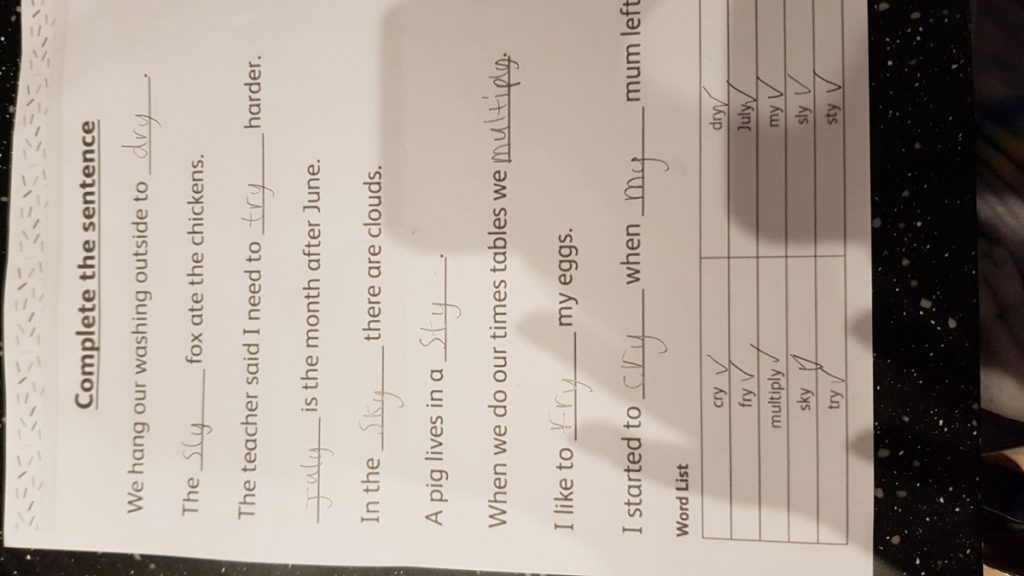 Complete the sentence
We hang our washing outside to dry.
The sly fox ate the chickens.
The teacher said I need to try harder.
july is the month after June.
In the sky there are clouds.
A pig lives in a sty.
When we do our times tables we multiply.
I like to fry my eggs.
I started to cry when my mum left
Word List
cry ✓ dry ✓
fry ✓ July ✓
multiply ✓ my ✓
sky ✓ sly ✓
try ✓ sty ✓